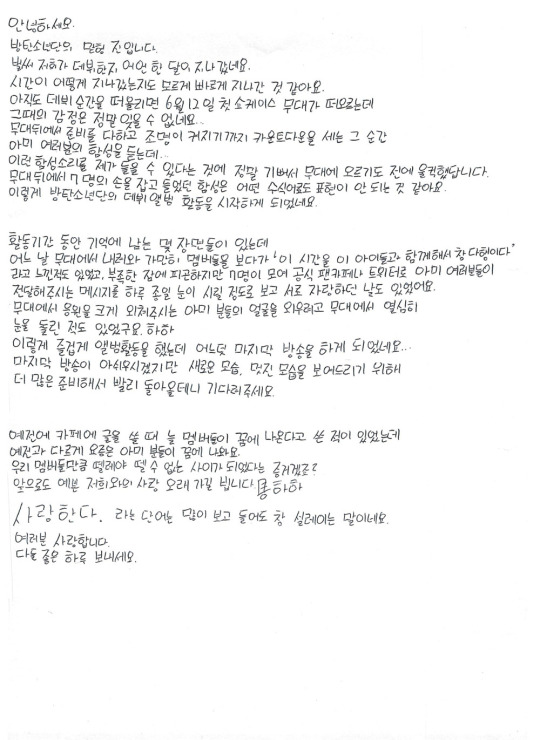 안녕하세요.
방탄소년단의 맏형 진입니다.
벌써 저희가 데뷔한지 어언 한 달이 지나갔네요.
시간이 어떻게 지나갔는지도 모르게 빠르게 지나간 것 같아요.
아직도 데뷔 순간을 떠올리면 6월 12일 첫 쇼케이스 무대가 떠오르는데
그때의 감정은 정말 잊을 수 없네요..
무대뒤에서 준비를 다하고 조명이 켜지기까지 카운트다운을 세는 그 순간
아미 여러분의 함성을 듣는데..
이런 함성소리를 제가 들을 수 있다는 것에 정말 기뻐서 무대에 오르기도 전에 울컥했답니다.
무대 뒤에서 7명의 손을 잡고 들었던 함성은 어떤 수식어로도 표현이 안 되는 것 같아요.
이렇게 방탄소년단의 데뷔앨범 활동을 시작하게 되었네요.
활동기간 동안 기억에 남는 몇 장면들이 있는데
어느 날 무대에서 내려와 가만히 멤버들을 보다가 '이 시간을 이 아이들과 함께해서 참 다행이다'
라고 느낀적도 있었고, 부족한 잠에 피곤하지만 7명이 모여 공식 팬카페나 트위터로 아미 여러분들이
전달해주시는 메시지를 하루 종일 눈이 시릴 정도로 보고 서로 자랑하던 날도 있었어요.
무대에서 응원을 크게 외쳐주시는 아미 분들의 얼굴을 외우려고 무대에서 열심히
눈을 돌린 적도 있었구요. 하하
이렇게 즐겁게 앨범활동을 했는데 어느덧 마지막 방송을 하게 되었네요...
마지막 방송이 아쉬우시겠지만 새로운 모습, 멋진 모습을 보여드리기 위해
더 많은 준비해서 빨리 돌아올테니 기다려주세요.
예전에 카페에 글을 쓸 때 늘 멤버들이 꿈에 나온다고 쓴 적이 있었는데
예전과 다르게 요즘은 아미 분들이 꿈에 나와요.
우리 멤버들만큼 뗄레야 뗄 수 없는 사이가 되었다는 증거겠죠?
앞으로도 예쁜 저희와의 사랑 오래 가길 빕니다 하하
사랑한다. 라는 단어는 많이 보고 들어도 참 설레이는 말이네요.
여러분 사랑합니다.
다들 좋은 하루 보내세요.